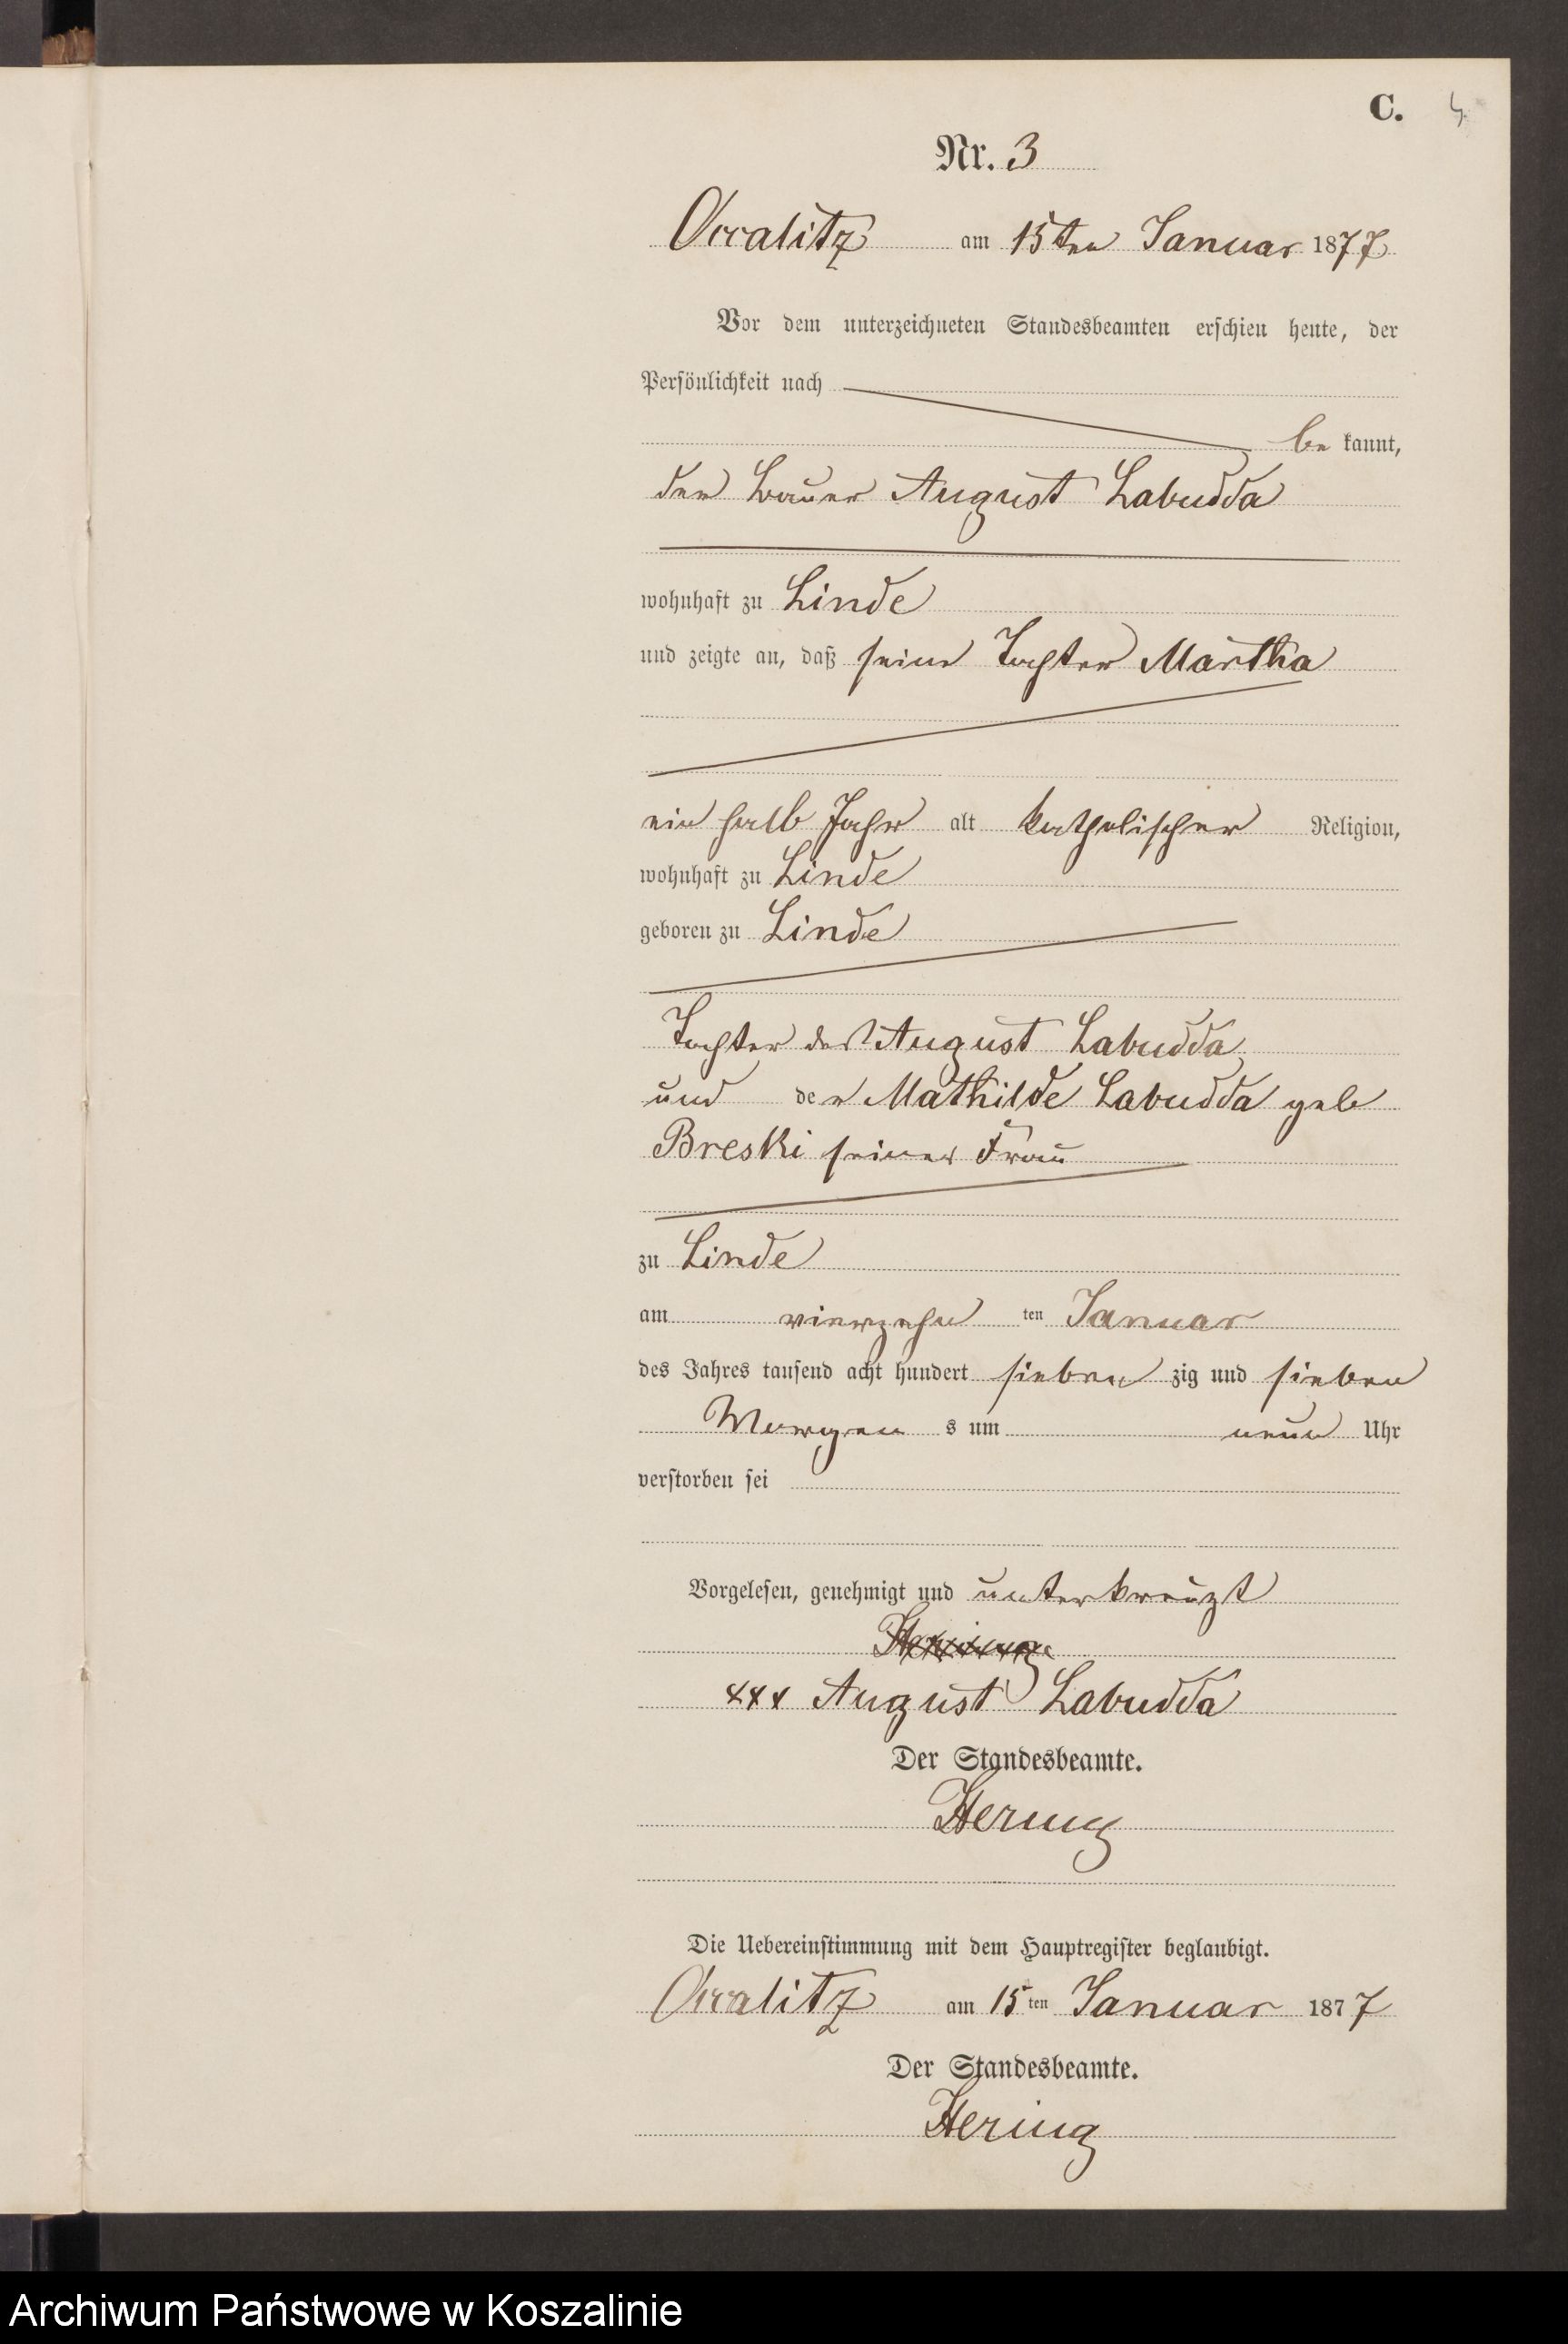 C. 4.
Nr. 3
Occalitz am 15ten Januar 1877
Vor dem unterzeichneten Standesbeamten erschien heute, der
Persönlichkeit nach
be kannt,
der Bauer August Labudda
wohnhaft zu Linde
und zeigte an, daß seine Tochter Martha
ein halb Jahr alt katholischer Religion,
wohnhaft zu Linde
geboren zu Linde
Tochter des August Labudda
und der Mathilde Labudda geb
Breski seiner Frau
zu Linde
am vierzehn ten Januar
des Jahres tausend acht hundert sieben zig und sieben
Morgen s um neun Uhr
verstorben sei
Vorgelesen, genehmigt und unterkreuzt
xxx August Labudda
Der Standesbeamte.
Hering
Die Uebereinstimmung mit dem Hauptregister beglaubigt.
Occalitz am 15ten Januar 1877
Der Standesbeamte.
Hering
Archiwum Państwowe w Koszalinie